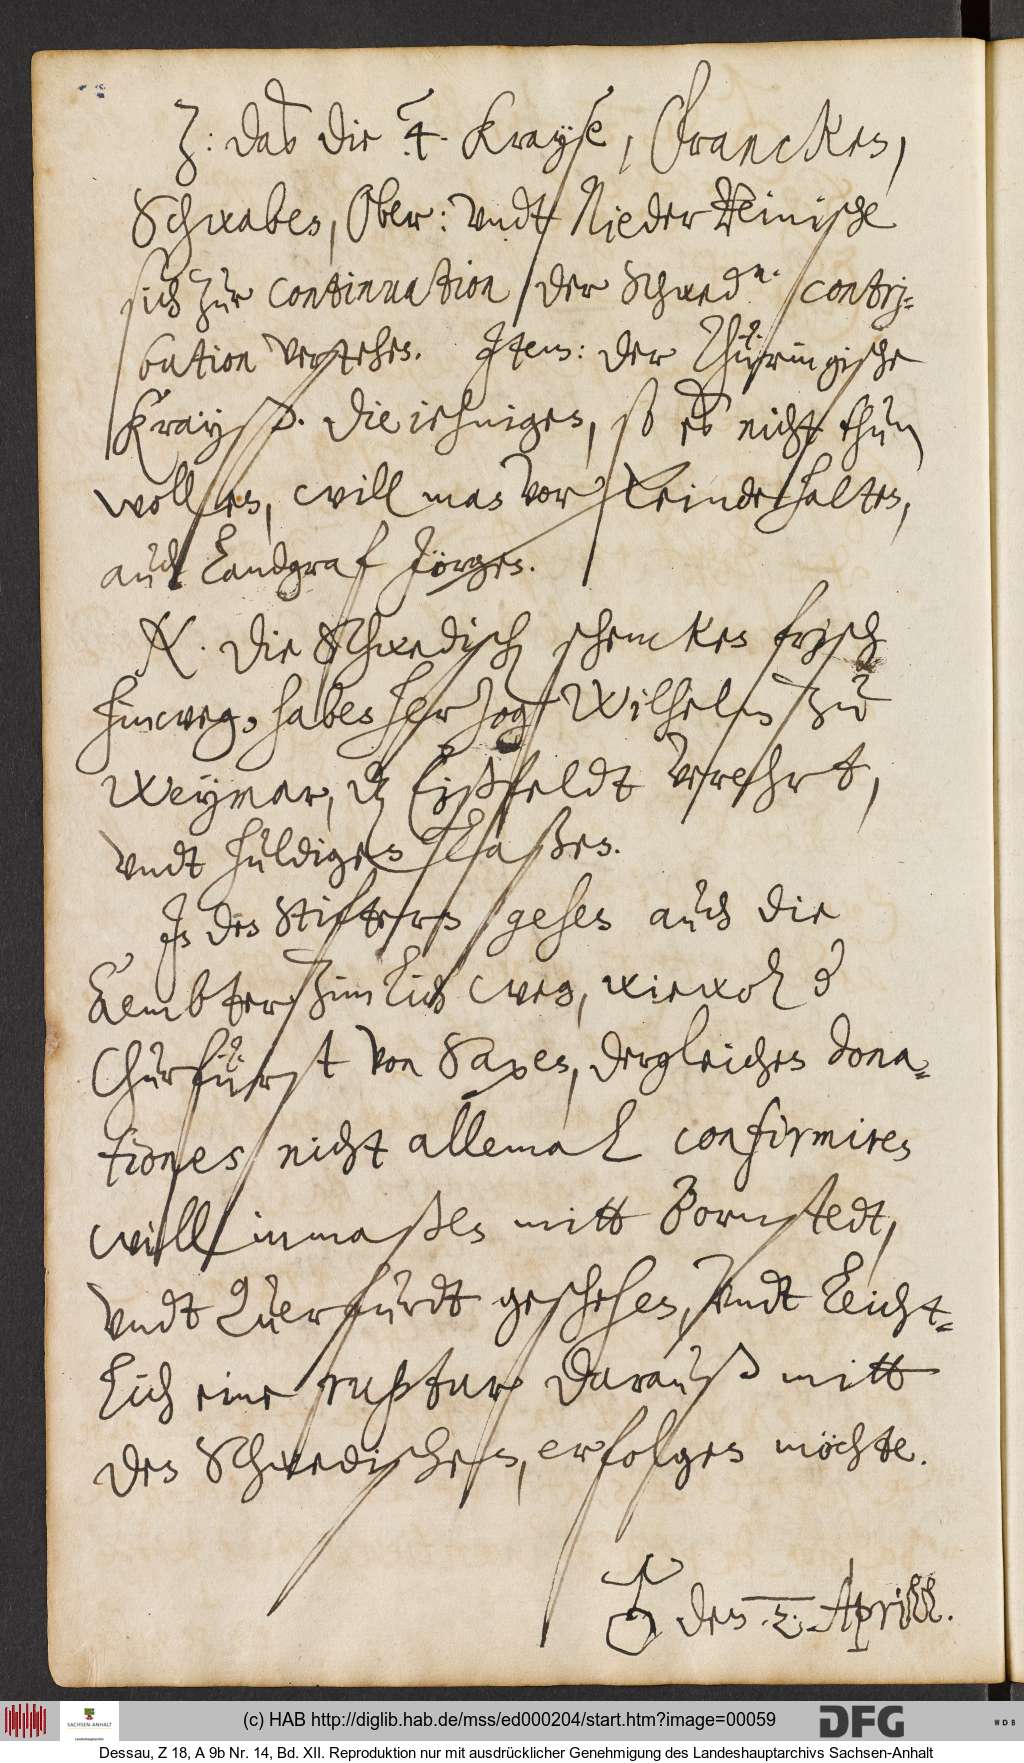 Z: das die 4. Krayse, Francken,
Schwaben, Ober: vndt Nieder Reinische
sich zur continuation der Schwed.n contri-
bution verstehen. Item: der Thüringische
Krayß. Die iehnigen, so es nicht thun
wollen, will man vor Feinde halten,
auch Landgraf Jörgen.
N. Die Schwedisch schencken frisch
hinweg, haben Herzog Wilhelm zu
Weymar, dz Eißfeldt verehrt,
vndt huldigen laßen.
Jn den Stiftern gehen auch die
Aembter zimlich weg, wiewol d
Churfürst von Saxen, dergleichen dona-
tiones nicht allemal confirmiren
will inmaßen mitt Bornstedt,
vndt Querfurdt geschehen, vndt leicht-
lich eine ruptur darauß mitt
den Schwedischen, erfolgen möchte.
♁ den .2. Aprill.
(c) HAB http://diglib.hab.de/mss/ed000204/start.htm?image=00059
SACHSEN-ANHALT
DFG
WDB
Dessau, Z 18, A 9b Nr. 14, Bd. XII. Reproduktion nur mit ausdrücklicher Genehmigung des Landeshauptarchivs Sachsen-Anhalt